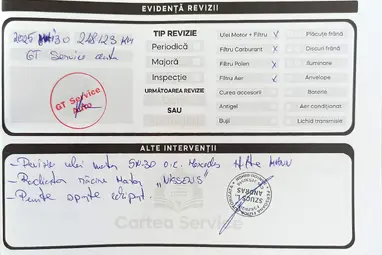 EVIDENȚĂ REVIZII
2025 30 218123 KM
GT Service auto
GT Service
TIP REVIZIE
Periodică
Majoră
Inspecție
URMĂTOAREA REVIZIE
SAU
Ulei Motor + Filtru
Filtru Carburant
Filtru Polen
Filtru Aer
Curea accesorii
Antigel
Bujii
Plăcuțe frână
Discuri frână
Iluminare
Anvelope
Baterie
Aer condiționat
Lichid transmisie
ALTE INTERVENȚII
- Revizie ulei motor 5W-30 o.e. Mercedes
- Radiator răcire Motor "NISSENS"
- Punte spate
SZUCS
ANDRAS
Cartea Service